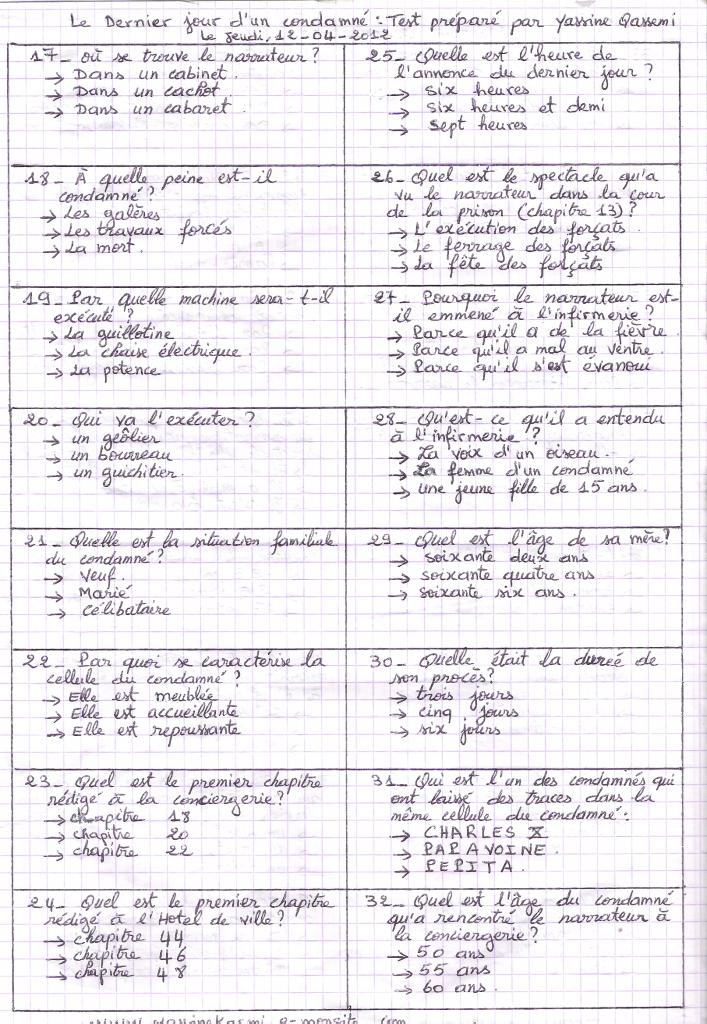 Le Dernier jour d'un condamné : Test préparé par Yassine Qassemi
Le jeudi, 12-04-2012
17_ où se trouve le narrateur ?
→ Dans un cabinet.
→ Dans un cachot.
→ Dans un cabaret.
18_ À quelle peine est-il
condamné ?
→ Les galères
→ Les travaux forcés
→ La mort.
19_ Par quelle machine sera-t-il
exécuté ?
→ La guillotine
→ La chaise électrique.
→ La potence
20_ Qui va l'exécuter ?
→ un geôlier
→ un bourreau
→ un guichitier.
21_ Quelle est la situation familiale
du condamné ?
→ Veuf.
→ Marié
→ célibataire
22_ Par quoi se caractérise la
cellule du condamné ?
→ Elle est meublée
→ Elle est accueillante
→ Elle est repoussante
23_ Quel est le premier chapitre
rédigé à la conciergerie ?
→ chapitre 18
→ chapitre 20
→ chapitre 22
24_ Quel est le premier chapitre
rédigé à l'Hotel de ville ?
→ chapitre 44
→ chapitre 46
→ chapitre 48
25_ Quelle est l'heure de
l'annonce du dernier jour ?
→ six heures
→ six heures et demi
→ sept heures
26_ Quel est le spectacle qu'a
vu le narrateur dans la cour
de la prison (chapitre 13) ?
→ L'exécution des forçats.
→ Le ferrage des forçats
→ La fête des forçats
27_ Pourquoi le narrateur est-
il emmené à l'infirmerie ?
→ Parce qu'il a de la fièvre.
→ Parce qu'il a mal au ventre.
→ Parce qu'il s'est évanoui
28_ Qu'est-ce qu'il a entendu
à l'infirmerie ?
→ La voix d'un oiseau.
→ La femme d'un condamné
→ une jeune fille de 15 ans.
29_ Quel est l'âge de sa mère ?
→ soixante deux ans
→ soixante quatre ans
→ soixante six ans.
30_ Quelle était la dureé de
son procès ?
→ trois jours
→ cinq jours
→ six jours
31_ Qui est l'un des condamnés qui
ont laissé des traces dans la
même cellule du condamné :
→ CHARLES X
→ PAPAVOINE.
→ PEPITA.
32_ Quel est l'âge du condamné
qu'a rencontré le narrateur à
la conciergerie ?
→ 50 ans
→ 55 ans.
→ 60 ans.